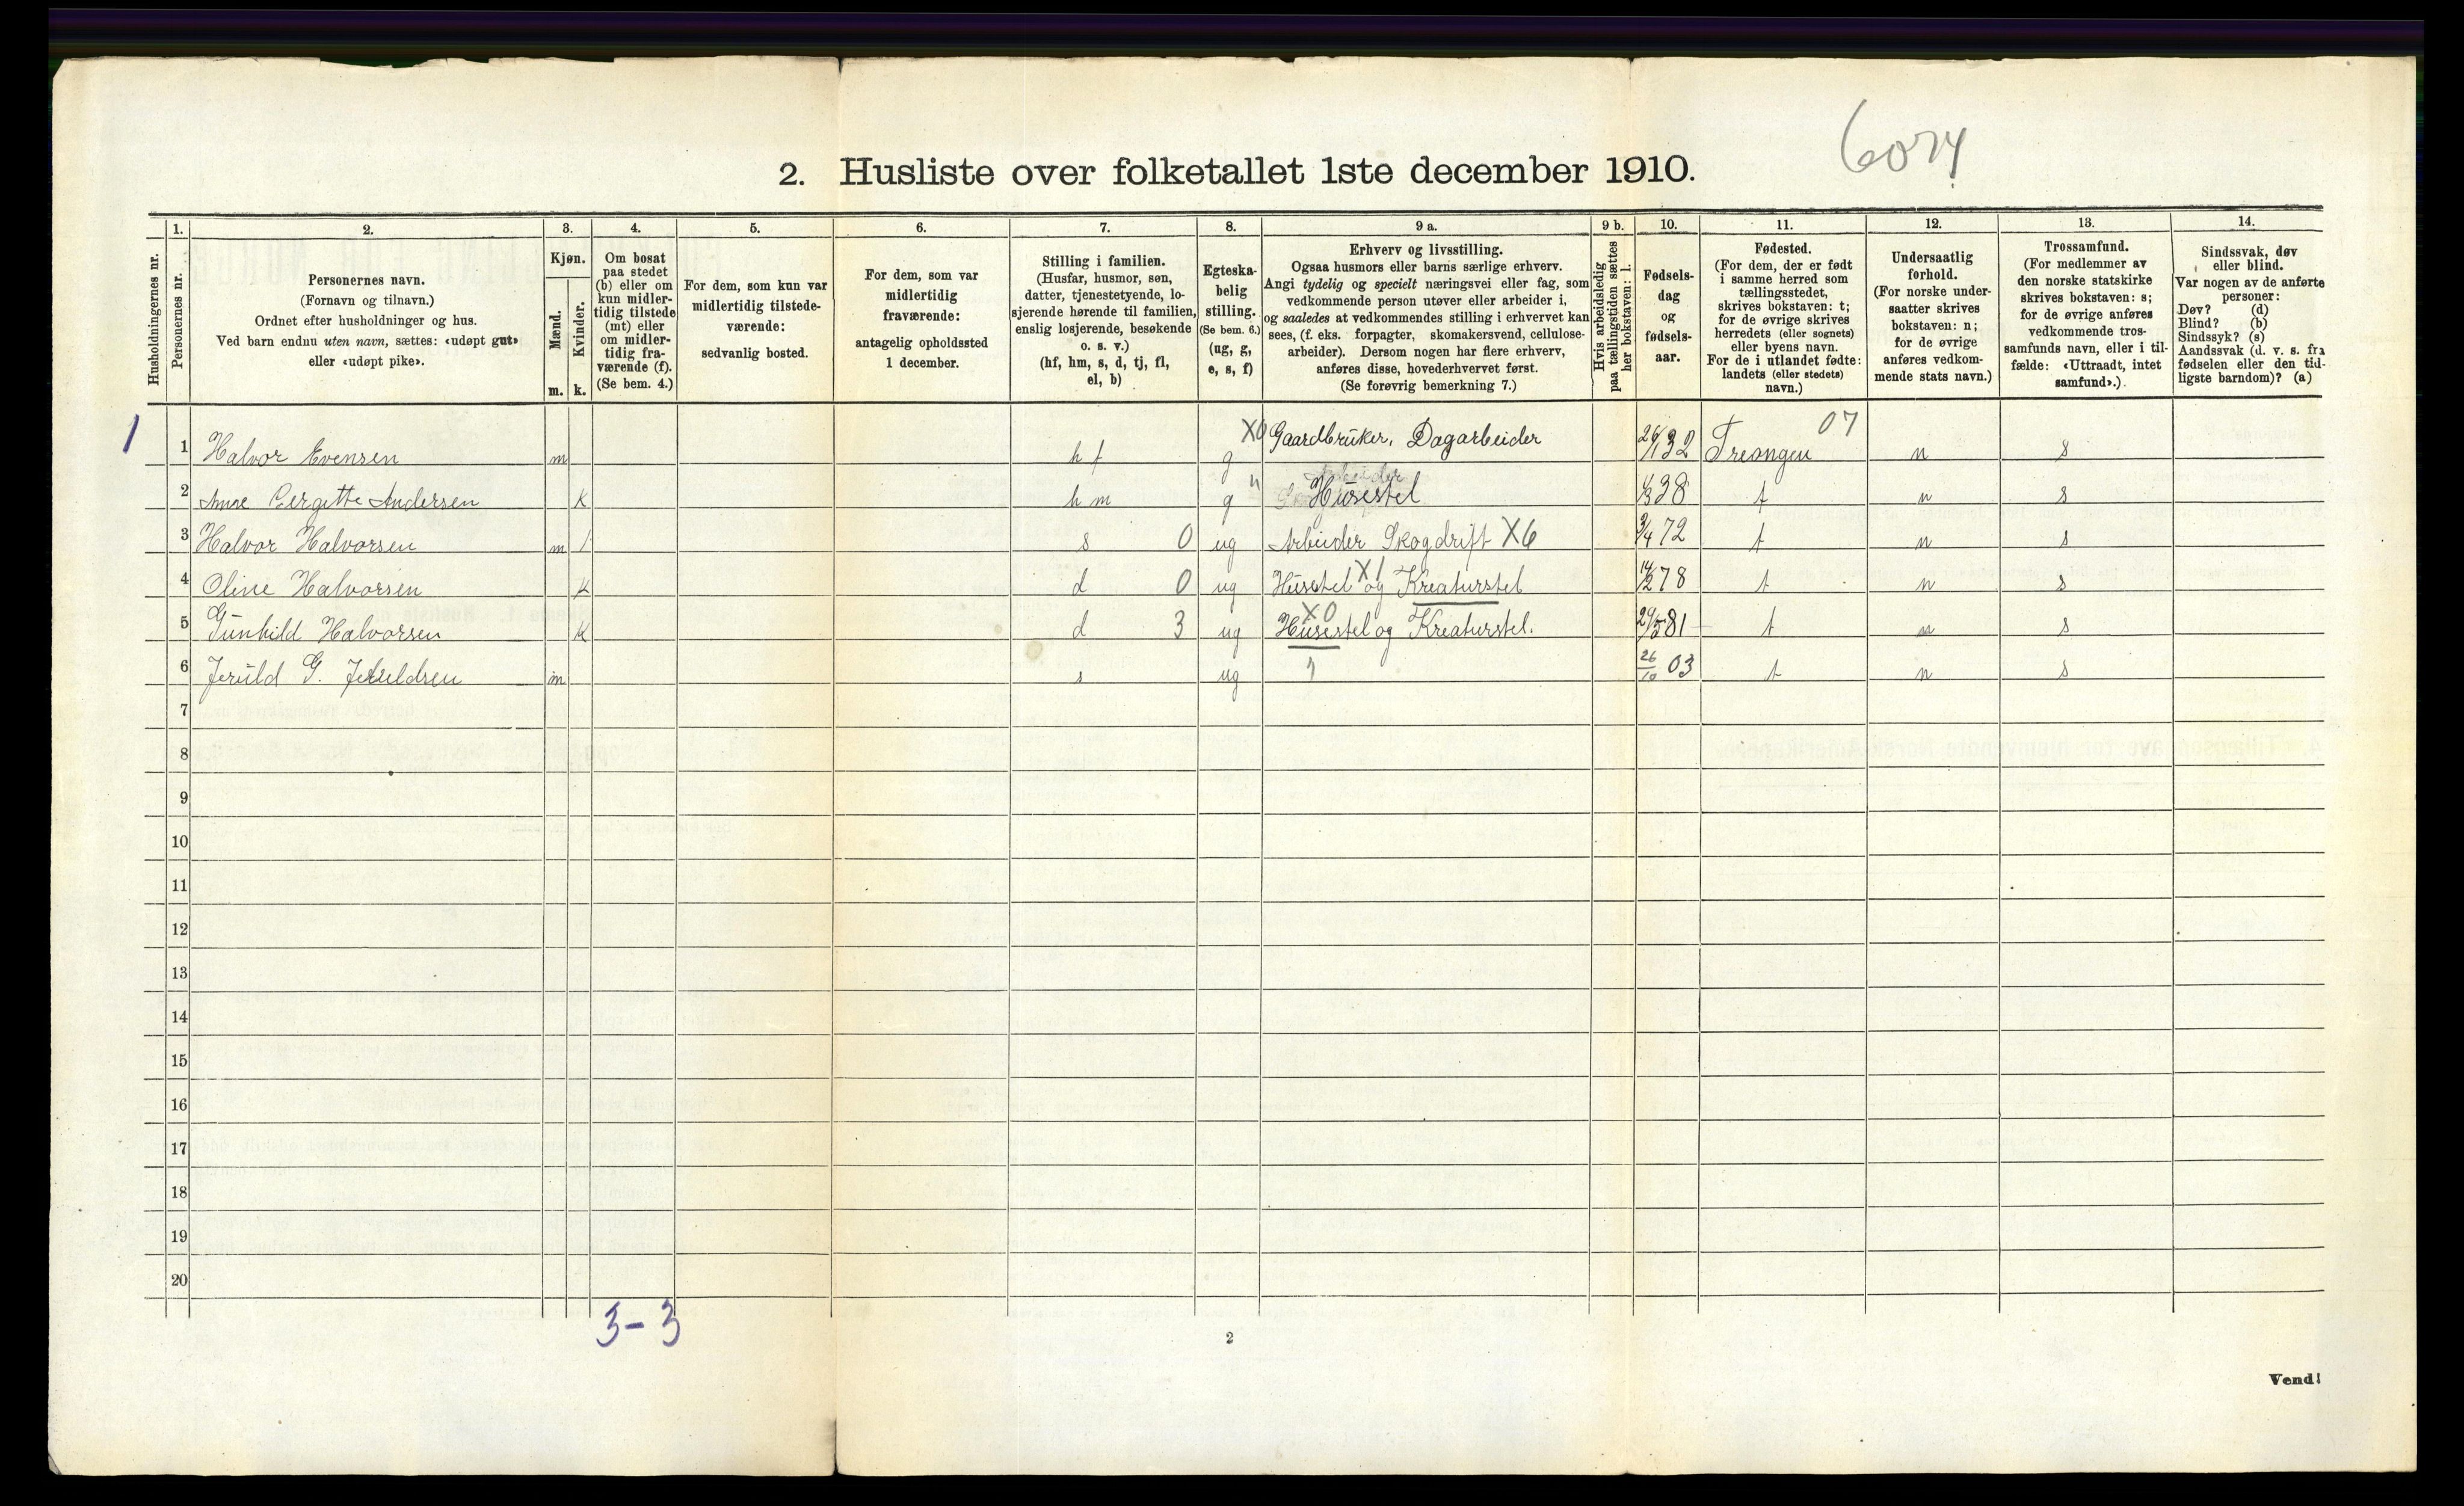 6074
2. Husliste over folketallet 1ste december 1910.
Husholdningernes nr.
1.
Personernes nr.
2.
Personernes navn.
(Fornavn og tilnavn.)
Ordnet efter husholdninger og hus.
Ved barn endnu uten navn, sættes: «udøpt gut»
eller «udøpt pike».
3.
Kjøn.
Mænd.
m.
Kvinder.
k.
4.
Om bosat
paa stedet
(b) eller om
kun midler-
tidig tilstede
(mt) eller
om midler-
tidig fra-
værende (f).
(Se bem. 4.)
5.
For dem, som kun var
midlertidig tilstede-
værende:
sedvanlig bosted.
6.
For dem, som var
midlertidig
fraværende:
antagelig opholdssted
1 december.
7.
Stilling i familien.
(Husfar, husmor, søn,
datter, tjenestetyende, lo-
sjerende hørende til familien,
enslig losjerende, besøkende
o. s. v.)
(hf, hm, s, d, tj, fl,
el, b)
8.
Egteska-
belig
stilling.
(Se bem. 6.)
(ug, g,
e, s, f)
9 a.
Erhverv og livsstilling.
Ogsaa husmors eller barns særlige erhverv.
Angi tydelig og specielt næringsvei eller fag, som
vedkommende person utøver eller arbeider i,
og saaledes at vedkommendes stilling i erhvervet kan
sees, (f. eks. forpagter, skomakersvend, cellulose-
arbeider). Dersom nogen har flere erhverv,
anføres disse, hovederhvervet først.
(Se forøvrig bemerkning 7.)
9 b.
Hvis arbeidsledig
paa tællingstiden sættes
her bokstaven: l.
10.
Fødsels-
dag
og
fødsels-
aar.
11.
Fødested.
(For dem, der er født
i samme herred som
tællingsstedet,
skrives bokstaven: t;
for de øvrige skrives
herredets (eller sognets)
eller byens navn.
For de i utlandet fødte:
landets (eller stedets)
navn.)
12.
Undersaatlig
forhold.
(For norske under-
saatter skrives
bokstaven: n;
for de øvrige
anføres vedkom-
mende stats navn.)
13.
Trossamfund.
(For medlemmer av
den norske statskirke
skrives bokstaven: s;
for de øvrige anføres
vedkommende tros-
samfunds navn, eller i til-
fælde: «Uttraadt, intet
samfund».)
14.
Sindssvak, døv
eller blind.
Var nogen av de anførte
personer:
Døv? (d)
Blind? (b)
Sindssyk? (s)
Aandssvak (d. v. s. fra
fødselen eller den tid-
ligste barndom)? (a)
1 1 Halvor Evensen m hf g X0 Gaardbruker, Dagarbeider 26/1 32 Treungen 07 n s
2 Anne Bergette Andersen k hm g " Husestel 4/3 38 t n s
3 Halvor Halvorsen m s 0 ug Arbeider Skogdrift X6 3/4 72 t n s
4 Oline Halvorsen k d 0 ug Husstel X1 og Kreaturstel 14/2 78 t n s
5 Gunhild Halvorsen k d 3 ug X0 Husestel og Kreaturstel. 29/5 81 t n s
6 Jeruld G. Jeruldsen m s ug 26/10 03 t n s
7
8
9
10
11
12
13
14
15
16
17
18
19
20
3-3
2
Vend!